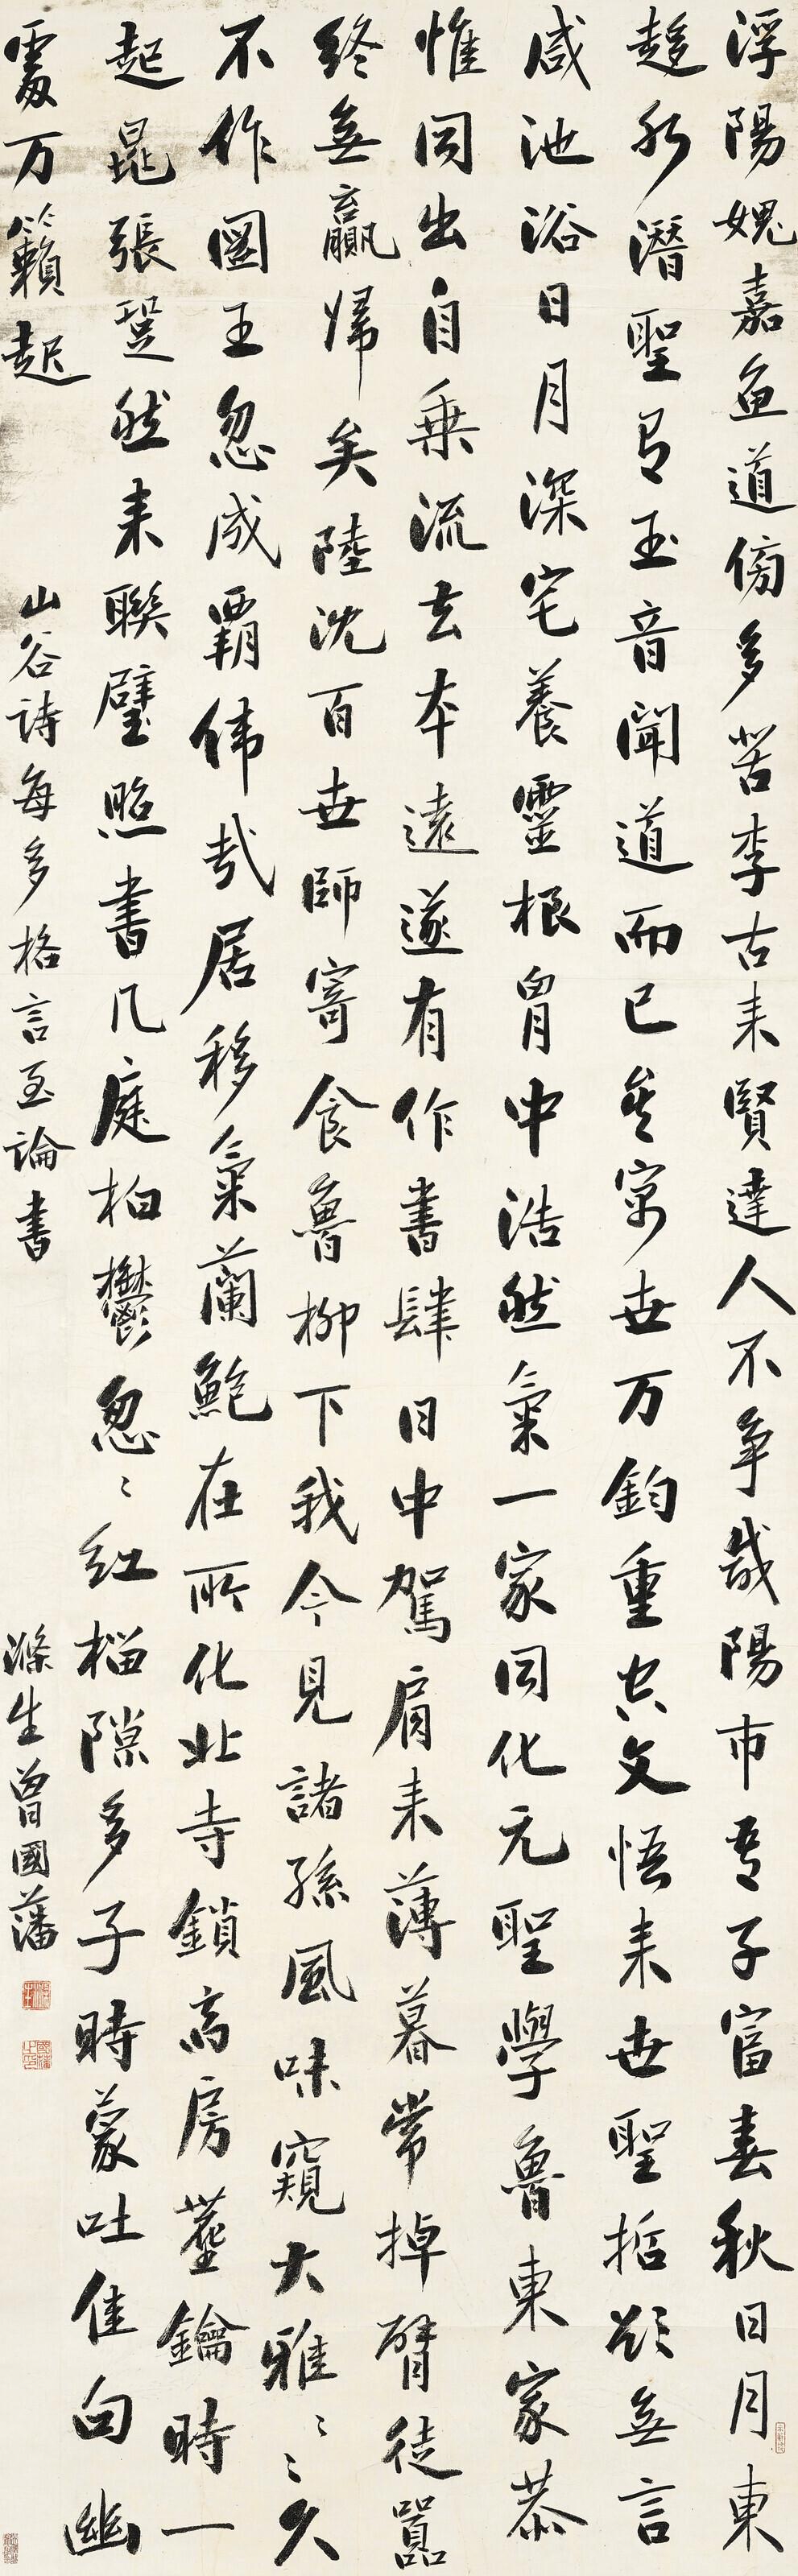 浮陽媿嘉魚道傍多苦李古来賢達人不争咸陽市吾子富春秋日月東
趍水潛聖有玉音聞道而已矣寄世万鈞重空文悟来世聖哲欲無言
咸池浴日月深宅養靈根胷中浩然氣一家同化元聖學魯東家恭
惟同出自乗流去本遠遂有作書肆日中駕肩来薄暮常掉臂徒囂
終無贏歸矣陸沈百世師寄食魯柳下我今見諸孫風味窺大雅〻〻久
不作圖王忽成覇偉哉居移氣蘭鮑在所化北寺鎖高房塵鑰時一
起晁張跫然来聯璧照書几庭柏鬱忽〻紅榴隙多子時蒙吐佳句幽
處万籟起
山谷詩每多格言至論書
滌生曾國藩